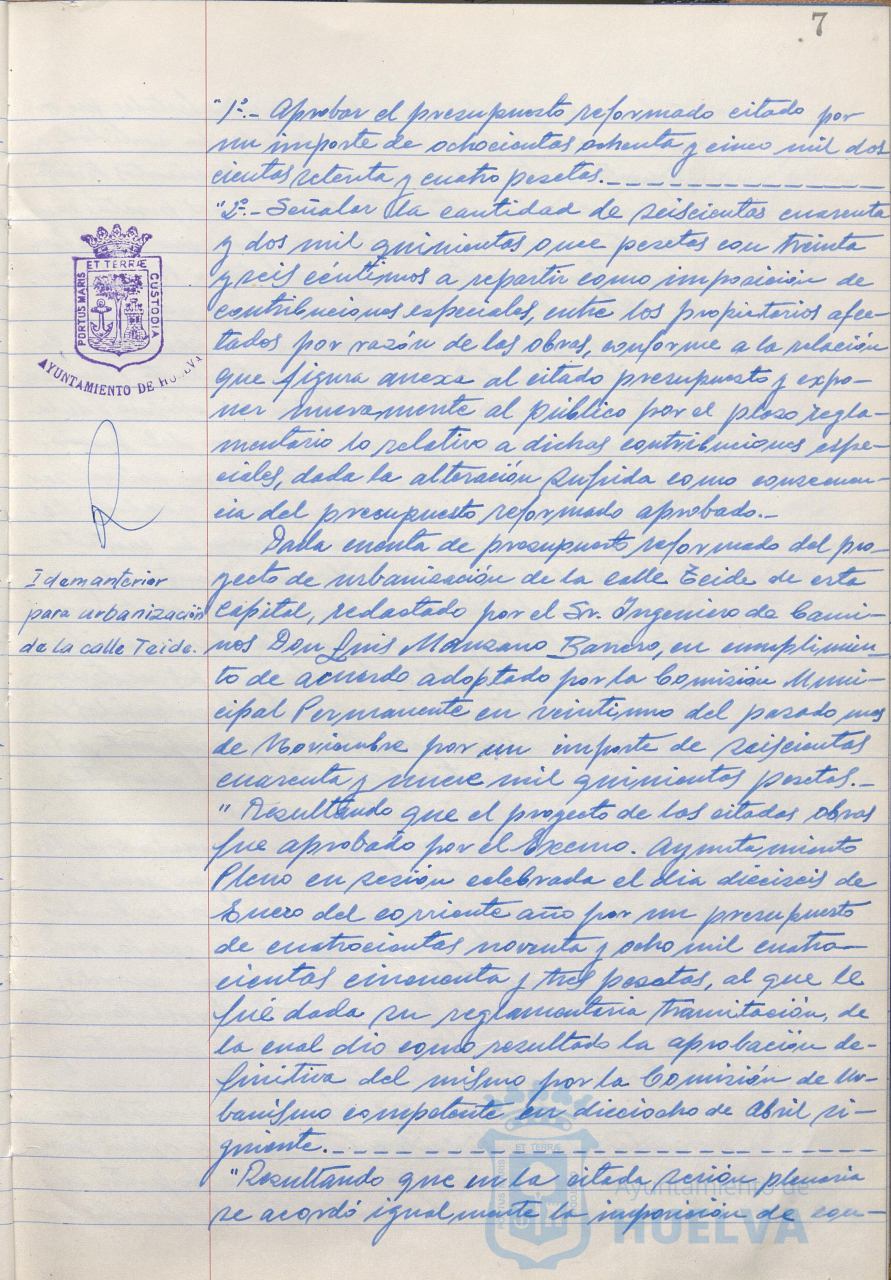 7
"1º.- Aprobar el presupuesto reformado citado por
un importe de ochocientas ochenta y cinco mil dos
cientas setenta y cuatro pesetas.
"2º.- Señalar la cantidad de seiscientas cuarenta
y dos mil quinientas once pesetas con treinta
y seis céntimos a repartir como imposición de
contribuciones especiales, entre los propietarios afec-
tados por razón de las obras, conforme a la relación
que figura anexa al citado presupuesto y expo-
ner nuevamente al público por el plazo regla-
mentario lo relativo a dichas contribuciones espe-
ciales, dada la alteración sufrida como consecuen-
cia del presupuesto reformado aprobado.-
ET TERRÆ
PORTUS MARIS
CUSTODIA
AYUNTAMIENTO DE HUELVA
Idem anterior
para urbanización
de la calle Teide.
Dada cuenta de presupuesto reformado del pro-
yecto de urbanización de la calle Teide de esta
Capital, redactado por el Sr. Ingeniero de Cami-
nos Don Luis Manzano Barrero, en cumplimien-
to de acuerdo adoptado por la Comisión Muni-
cipal Permanente en veintiuno del pasado mes
de Noviembre por un importe de seiscientas
cuarenta y nueve mil quinientas pesetas.-
" Resultando que el proyecto de las citadas obras
fue aprobado por el Excmo. Ayuntamiento
Pleno en sesión celebrada el día dieciseis de
Enero del corriente año por un presupuesto
de cuatrocientas noventa y ocho mil cuatro-
cientas cincuenta y tres pesetas, al que le
fué dada su reglamentaria tramitación, de
la cual dio como resultado la aprobación de-
finitiva del mismo por la Comisión de Ur-
banismo competente en dieciocho de Abril si-
guiente.
"Resultando que en la citada sesión plenaria
se acordó igualmente la imposición de con-
Ayuntamiento de
HUELVA